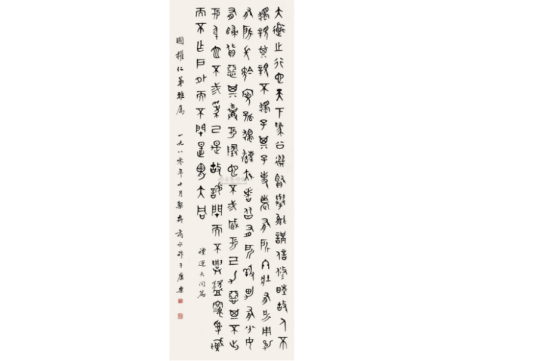 大道之行也天下為公選賢與能講信修睦故人不
獨親其親不獨子其子使老有所終壯有所用幼
有所長矜寡孤獨廢疾者皆有所養男有分女
有歸貨惡其棄於地也不必藏於己力惡其不出
於身也不必為己是故謀閉而不興盜竊亂賊
而不作戶外而不閉是謂大同
禮運大同篇
一九八零年十月